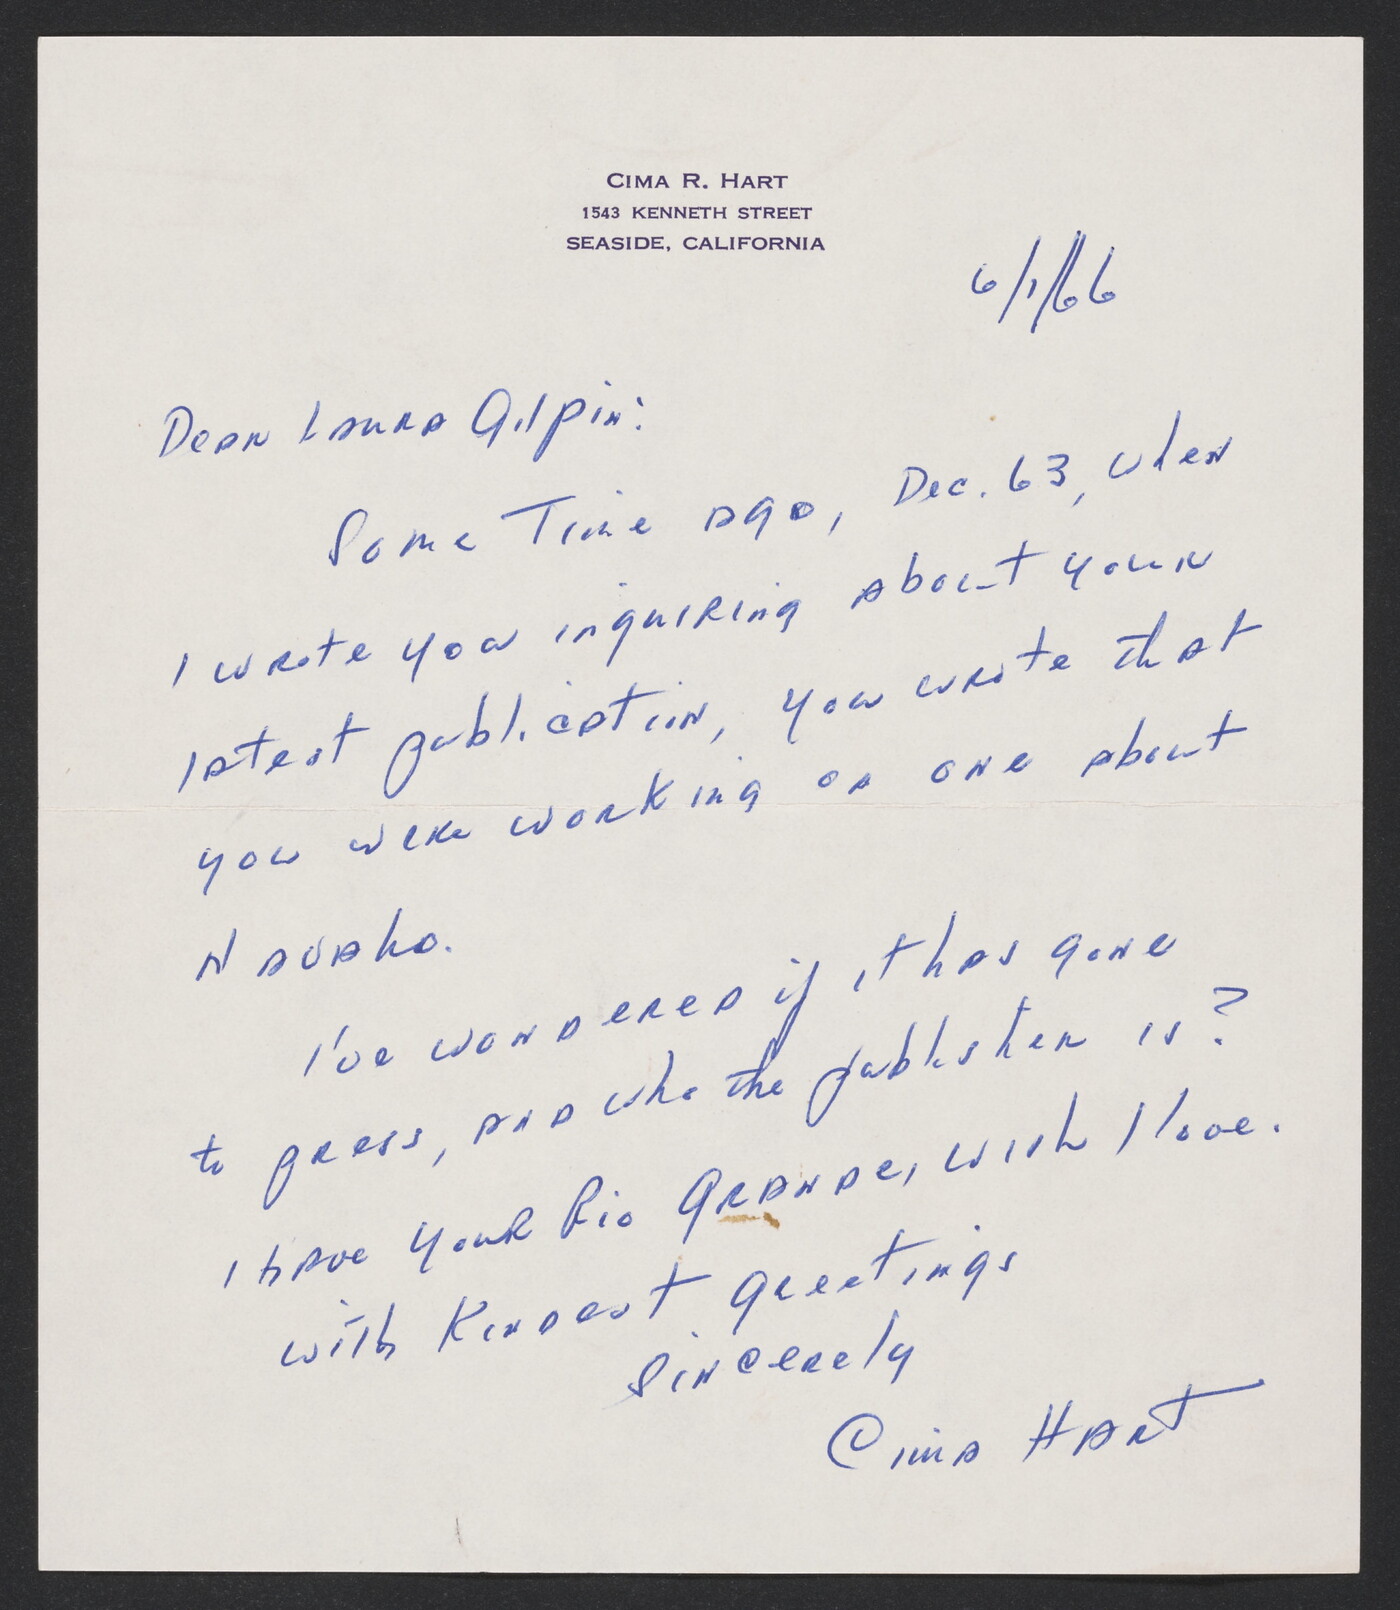 CIMA R. HART
1543 KENNETH STREET
SEASIDE, CALIFORNIA
6/1/66
Dear Laura Gilpin:
Some Time ago, Dec. 63, when
I wrote you inquiring about your
latest publication, you wrote that
you were working on one about
Navaho.
I've wondered if it has gone
to press, and who the publisher is?
I have your Rio Grande, wich I love.
with Kindest greetings
Sincerely
Cima Hart